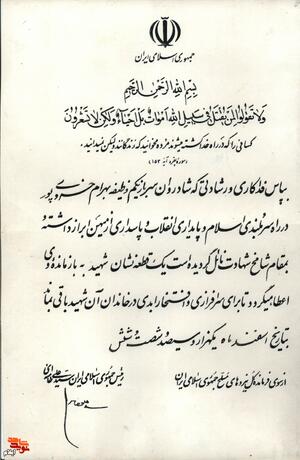 جمهوری اسلامی ایران
بسم الله الرحمن الرحیم
ولا تقولوا لمن یقتل فی سبیل الله اموات بل احیاء ولکن لا تشعرون
کسانی را که در راه خدا کشته میشوند مرده مخوانید که زندگانند ولیکن نمیدانید.
سوره بقره آیه ۱۵۳
بپاس فداکاری و رشادتی که شادروان سرباز یکم وظیفه بهرام خسروی پور
در راه سربلندی اسلام و پایداری انقلاب و پاسداری از میهن ابراز داشته و
بمقام شامخ شهادت نائل گردیده است یک قطعه نشان شهید به بازمانده وی
اعطا میگردد تا برای سرفرازی و افتخار ابدی در خاندان آن شهید باقی بماند
بتاریخ اسفند ماه یکهزار و سیصد و شصت و شش
از سوی فرمانده کل نیروهای مسلح جمهوری اسلامی ایران
رئیس جمهوری اسلامی ایران سید علی خامنه‌ای